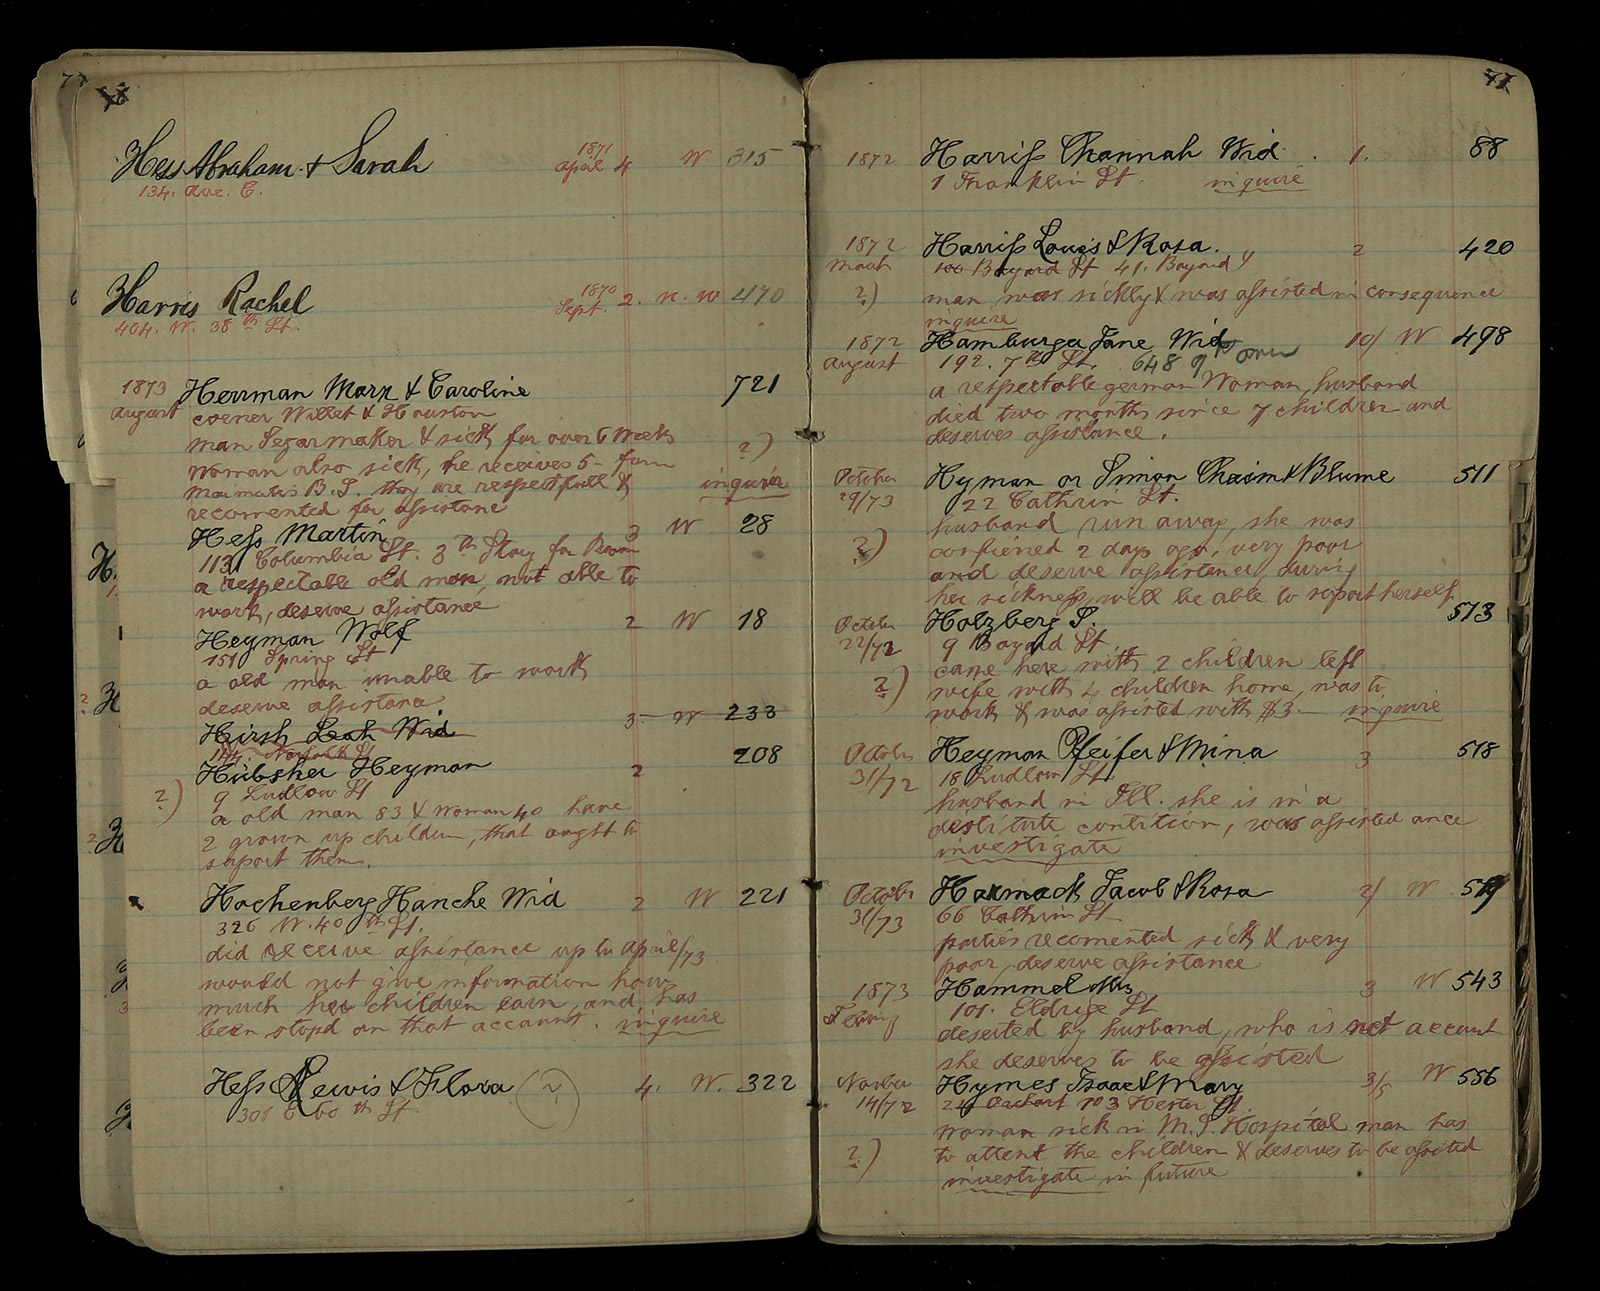 Hess Abraham & Sarah 1871 April 4 W 315
134. Ave. C.
Harris Rachel 1870 Sept. 2. n. w 470
404. W. 38th St.
1873 Herrman Marx & Caroline 721
August corner Willet & Houston
man Segarmaker & sick for over 6 Weeks ?)
Woman also sick, he receives 5- from
B.S. they are respectfull & inquire
recomented for assistanc
Hess Martin 3 W 28
113 Columbia St. 3th Story for Room
a respectable old man, not able to
work, deserve assistance
Heyman Wolf 2 W 18
151 Spring St
a old man unable to work
deserve assistanc.
Hirsh Leah Wid 3- W 233
144. Norfolk St
Hübsher Heyman 2 208
?) 9 Ludlow St
a old man 83 & woman 40 have
2 grown up children, that aught to
suport them.
Hochenberg Hanche Wid 2 W 221
326 W. 40th St.
did receive assistance up to April/73
would not give information how
much her children earn, and has
been stopd on that account. inquire
Hess Lewis & Flora (?) 4. W. 322
301 E 60th St.
1872 Harriss Channah Wid. 1. 88
1 Franklin St. inquire
1872 Harriss Louis & Rosa. 2 420
March 100 Bayard St 41. Bayard
?) man was sickly & was assisted in consequence
inquire
1872 Hamburger Jane Wid 10/ W 498
August 192. 7th St. 648 9th
a respectable german Woman, husband
died two months since 7 children and
deserves assistance.
October Hyman or Simon Chaim & Blume 511
29/73 22 Cathrin St.
husband run away, she was
?) confiened 2 days ago, very poor
and deserve assistance, during
her sickness, will be able to suport herself
October Holzberg S. 513
22/72 9 Bayard St
came here with 2 children left
?) wife with 4 children home, was to
work & was assisted with $3.— inquire
October Heyman Pfeifer & Mina 3 518
31/72 18 Ludlow St
husband in Ill. she is in a
destitute contition, was assisted once
investigate
October Harmack Jacob & Rosa 2/ W 519
31/73 66 Cathrin St.
parties recomented sick & very
poor, deserve assistance
1873 Hammel Mrs 3 W 543
101. Eldrige St
deserted by husband, who is not account
she deserves to be assisted
Novber Hymes Isaac & Mary 3/5 W 556
14/72 Orchart 103 Hester St
woman sick in M. S. Hospital man has
?) to attent the children & deserves to be assisted
investigate in future